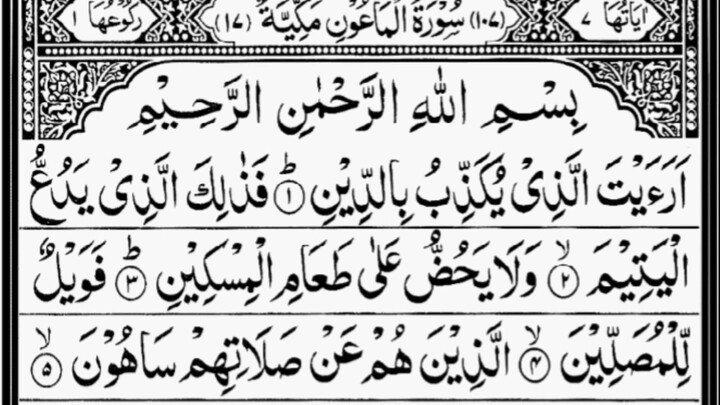 اٰيَاتُهَا ٧ (١٠٧) سُوْرَةُ الْمَاعُوْنِ مَكِّيَّةٌ (١٧) رُكُوْعُهَا ١
بِسْمِ اللهِ الرَّحْمٰنِ الرَّحِيْمِ
اَرَءَيْتَ الَّذِىْ يُكَذِّبُ بِالدِّيْنِ ؕ﴿١﴾ فَذٰلِكَ الَّذِىْ يَدُعُّ
الْيَتِيْمَ ۙ﴿٢﴾ وَلَا يَحُضُّ عَلٰى طَعَامِ الْمِسْكِيْنِ ؕ﴿٣﴾ فَوَيْلٌ
لِّلْمُصَلِّيْنَ ۙ﴿۴﴾ الَّذِيْنَ هُمْ عَنْ صَلَاتِهِمْ سَاهُوْنَ ۙ﴿۵﴾